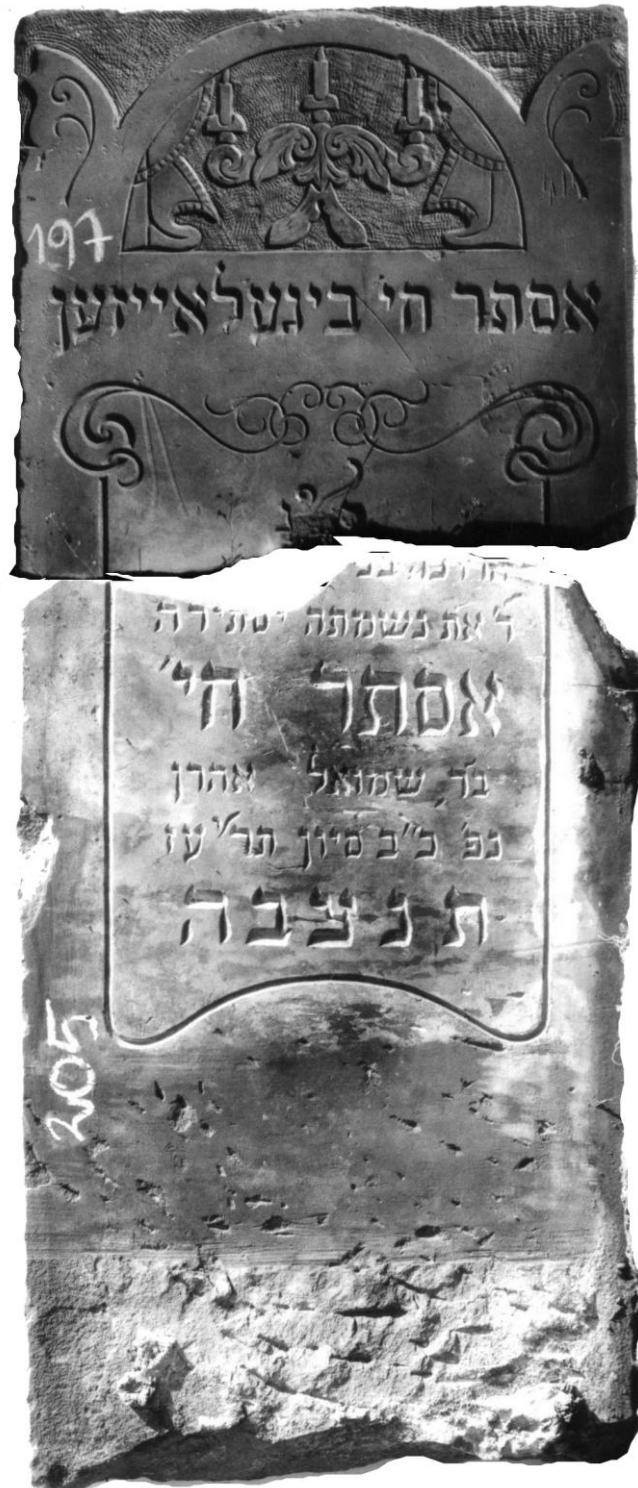 197
אסתר חי' ביגעלאייזען
ד' את נשמתה יסתירה
אסתר חי'
בר' שמואל אהרן
נפ' כ"ב סיון תר"עז
תנצבה
205